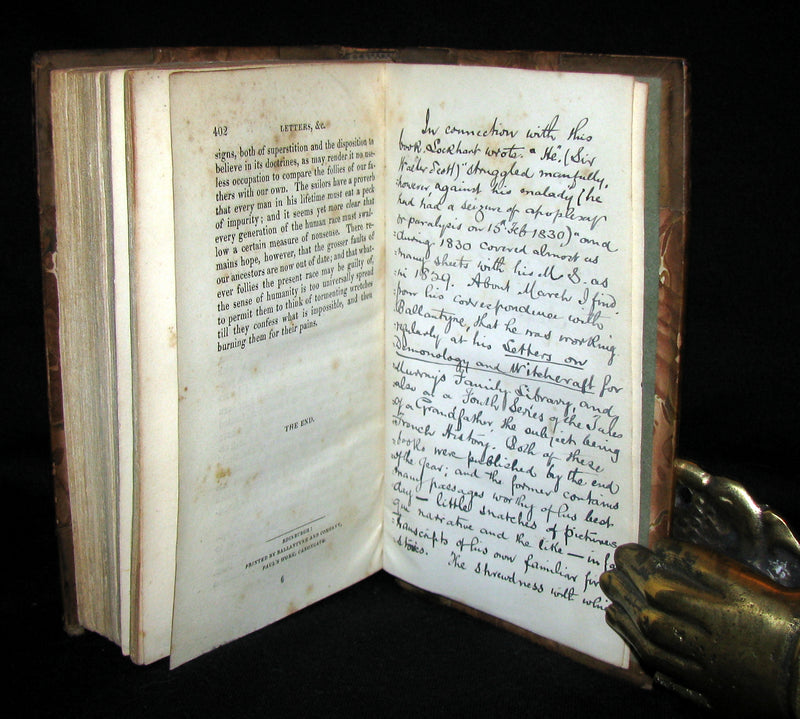 402
LETTERS, &c.
signs, both of superstition and the disposition to
believe in its doctrines, as may render it no use-
less occupation to compare the follies of our fa-
thers with our own. The sailors have a proverb
that every man in his lifetime must eat a peck
of impurity; and it seems yet more clear that
every generation of the human race must swal-
low a certain measure of nonsense. There re-
mains hope, however, that the grosser faults of
our ancestors are now out of date; and that what-
ever follies the present race may be guilty of,
the sense of humanity is too universally spread
to permit them to think of tormenting wretches
till they confess what is impossible, and then
burning them for their pains.
THE END.
EDINBURGH:
PRINTED BY BALLANTYNE AND COMPANY,
PAUL'S WORK, CANONGATE.
6
In connection with this
book Lockhart wrote. "He" (Sir
Walter Scott) "struggled manfully,
however, against his malady (he
had had a seizure of apoplexy
or paralysis on 15 Feb 1830)" and
during 1830 covered almost as
many sheets with his M S. as
in 1829. About March I find,
from his correspondence with
Ballantyne, that he was working
at his Letters on
Demonology and Witchcraft for
Murray's Family Library, and
also at a Fourth Series of the Tales
of a Grandfather the subject being
French History. Both of these
books were published by the end
of the year; and the former contains
many passages worthy of his best
day — little snatches of picturesque
narrative and the like — in fa
transcripts of his own familiar fire
stories. The shrewdness with whi